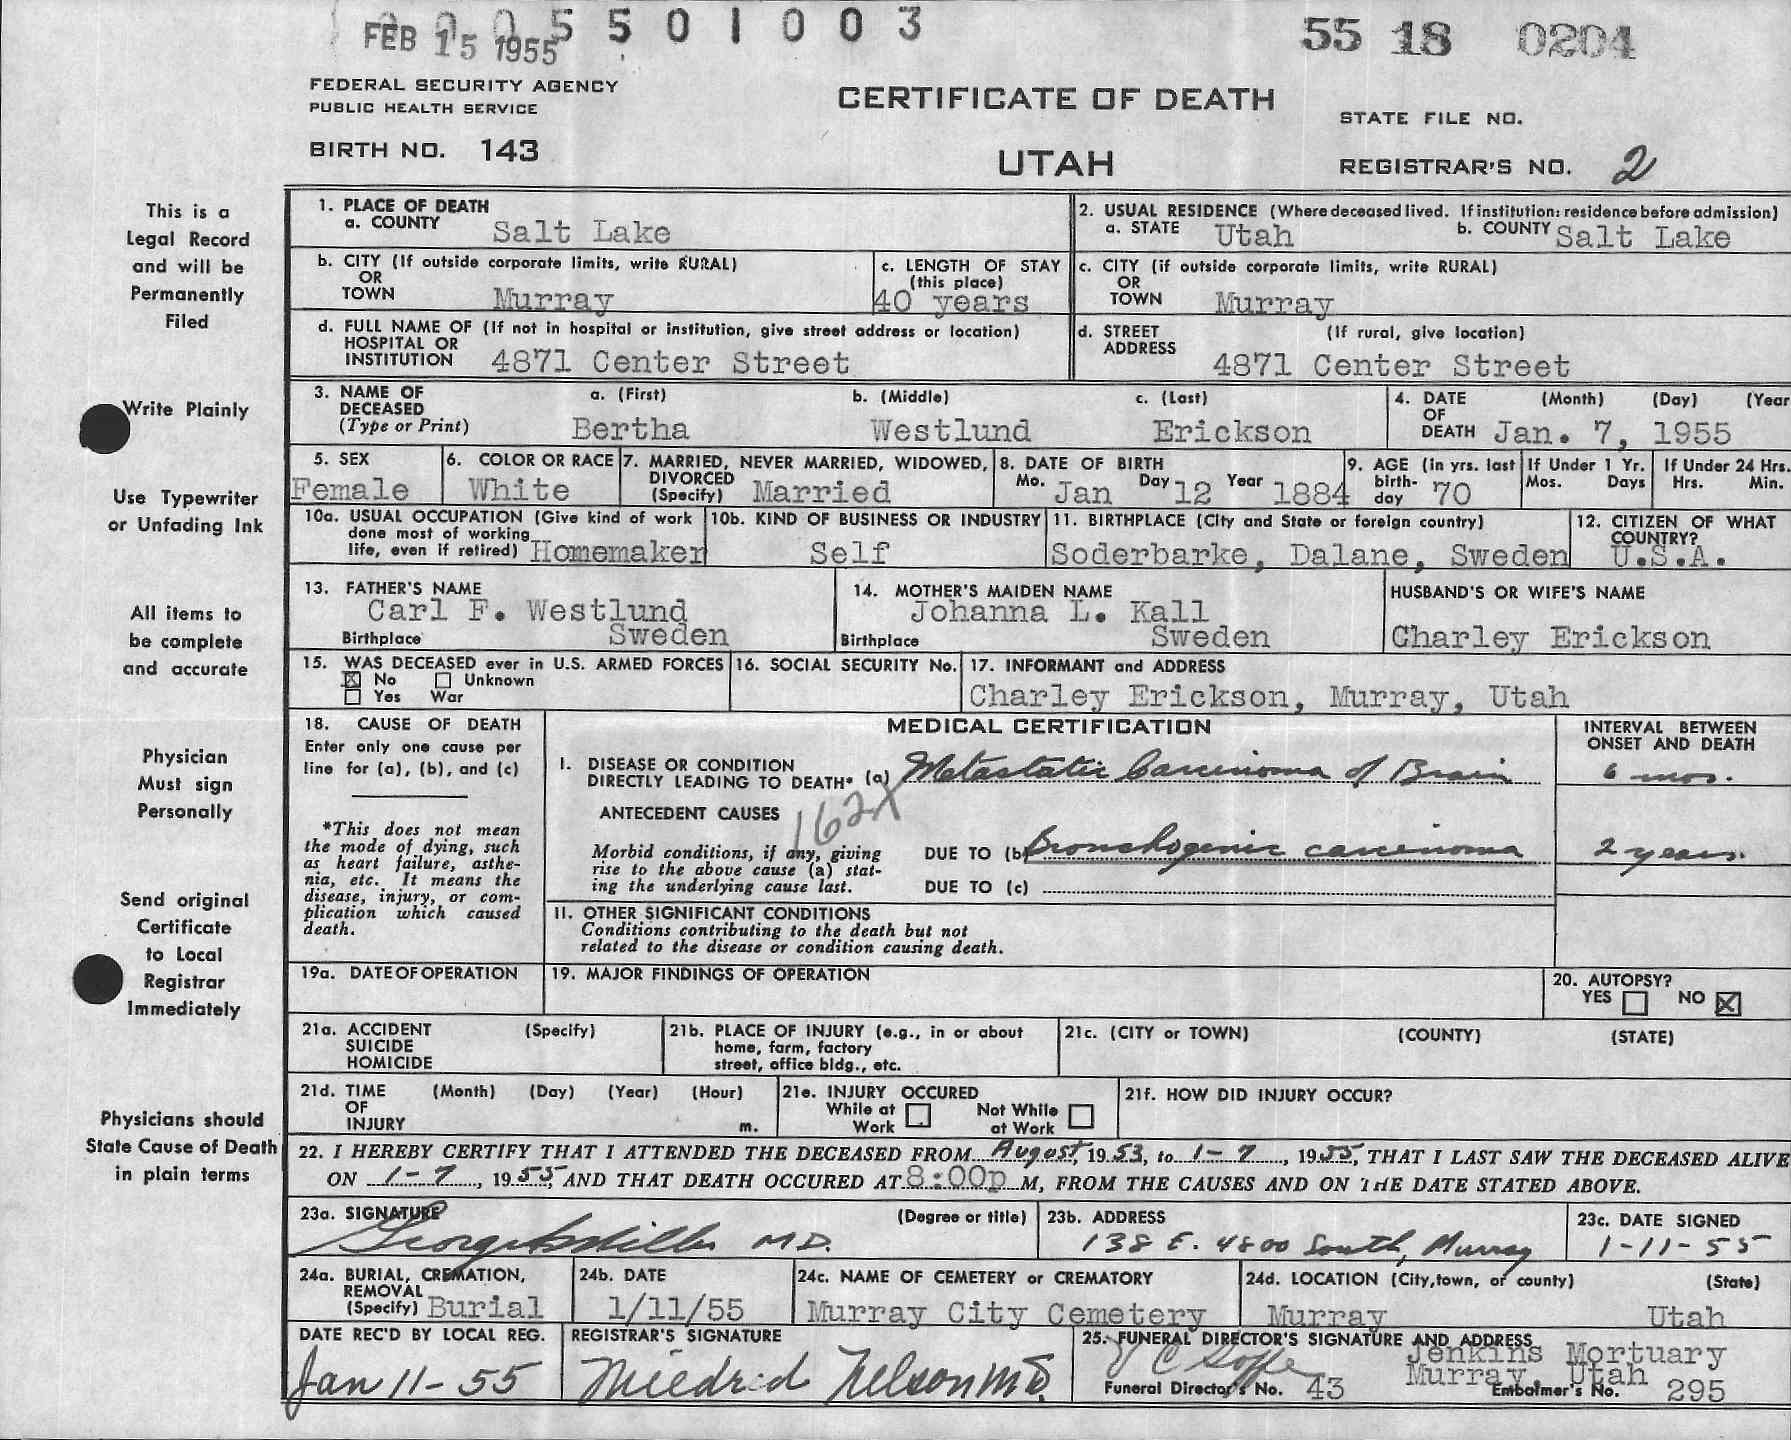 0 0 0 5 5 0 1 0 0 3
FEB 15 1955
55 18 0204
FEDERAL SECURITY AGENCY
PUBLIC HEALTH SERVICE
CERTIFICATE OF DEATH
STATE FILE NO.
BIRTH NO. 143
UTAH
REGISTRAR'S NO. 2
This is a
Legal Record
and will be
Permanently
Filed
Write Plainly
Use Typewriter
or Unfading Ink
All items to
be complete
and accurate
Physician
Must sign
Personally
Send original
Certificate
to Local
Registrar
Immediately
Physicians should
State Cause of Death
in plain terms
1. PLACE OF DEATH
a. COUNTY Salt Lake
2. USUAL RESIDENCE (Where deceased lived. If institution: residence before admission)
a. STATE Utah b. COUNTY Salt Lake
b. CITY (If outside corporate limits, write RURAL)
OR
TOWN Murray
c. LENGTH OF STAY
(this place)
40 years
c. CITY (if outside corporate limits, write RURAL)
OR
TOWN Murray
d. FULL NAME OF (If not in hospital or institution, give street address or location)
HOSPITAL OR
INSTITUTION 4871 Center Street
d. STREET (If rural, give location)
ADDRESS
4871 Center Street
3. NAME OF a. (First) b. (Middle) c. (Last)
DECEASED
(Type or Print) Bertha Westlund Erickson
4. DATE (Month) (Day) (Year
OF
DEATH Jan. 7, 1955
5. SEX
Female
6. COLOR OR RACE
White
7. MARRIED, NEVER MARRIED, WIDOWED,
DIVORCED
(Specify) Married
8. DATE OF BIRTH
Mo. Jan Day 12 Year 1884
9. AGE (in yrs. last
birth-
day 70
If Under 1 Yr.
Mos. Days
If Under 24 Hrs.
Hrs. Min.
10a. USUAL OCCUPATION (Give kind of work
done most of working
life, even if retired) Homemaker
10b. KIND OF BUSINESS OR INDUSTRY
Self
11. BIRTHPLACE (City and State or foreign country)
Soderbarke, Dalane, Sweden
12. CITIZEN OF WHAT
COUNTRY?
U.S.A.
13. FATHER'S NAME
Carl F. Westlund
Birthplace Sweden
14. MOTHER'S MAIDEN NAME
Johanna L. Kall
Birthplace Sweden
HUSBAND'S OR WIFE'S NAME
Charley Erickson
15. WAS DECEASED ever in U.S. ARMED FORCES
No Unknown
Yes War
16. SOCIAL SECURITY No.
17. INFORMANT and ADDRESS
Charley Erickson, Murray, Utah
18. CAUSE OF DEATH
Enter only one cause per
line for (a), (b), and (c)
*This does not mean
the mode of dying, such
as heart failure, asthe-
nia, etc. It means the
disease, injury, or com-
plication which caused
death.
MEDICAL CERTIFICATION
INTERVAL BETWEEN
ONSET AND DEATH
I. DISEASE OR CONDITION
DIRECTLY LEADING TO DEATH* (a) Metastatic Carcinoma of Brain 6 mos.
162X
ANTECEDENT CAUSES
Morbid conditions, if any, giving
rise to the above cause (a) stat-
ing the underlying cause last.
DUE TO (b) Bronchogenic carcinoma 2 years.
DUE TO (c)
II. OTHER SIGNIFICANT CONDITIONS
Conditions contributing to the death but not
related to the disease or condition causing death.
19a. DATE OF OPERATION
19. MAJOR FINDINGS OF OPERATION
20. AUTOPSY?
YES NO
21a. ACCIDENT (Specify)
SUICIDE
HOMICIDE
21b. PLACE OF INJURY (e.g., in or about
home, farm, factory
street, office bldg., etc.
21c. (CITY or TOWN) (COUNTY) (STATE)
21d. TIME (Month) (Day) (Year) (Hour)
OF
INJURY m.
21e. INJURY OCCURED
While at Not While
Work at Work
21f. HOW DID INJURY OCCUR?
22. I HEREBY CERTIFY THAT I ATTENDED THE DECEASED FROM August, 1953, to 1-7, 1955, THAT I LAST SAW THE DECEASED ALIVE
ON 1-7, 1955, AND THAT DEATH OCCURED AT 8:00p M, FROM THE CAUSES AND ON THE DATE STATED ABOVE.
23a. SIGNATURE (Degree or title)
George M.D.
23b. ADDRESS
138 E. 4800 South, Murray
23c. DATE SIGNED
1-11-55
24a. BURIAL, CREMATION,
REMOVAL
(Specify) Burial
24b. DATE
1/11/55
24c. NAME OF CEMETERY or CREMATORY
Murray City Cemetery
24d. LOCATION (City, town, or county) (State)
Murray Utah
DATE REC'D BY LOCAL REG.
Jan 11-55
REGISTRAR'S SIGNATURE
Mildred Nelson M.D.
25. FUNERAL DIRECTOR'S SIGNATURE AND ADDRESS
Jenkins Mortuary
Murray, Utah
Funeral Director's No. 43 Embalmer's No. 295